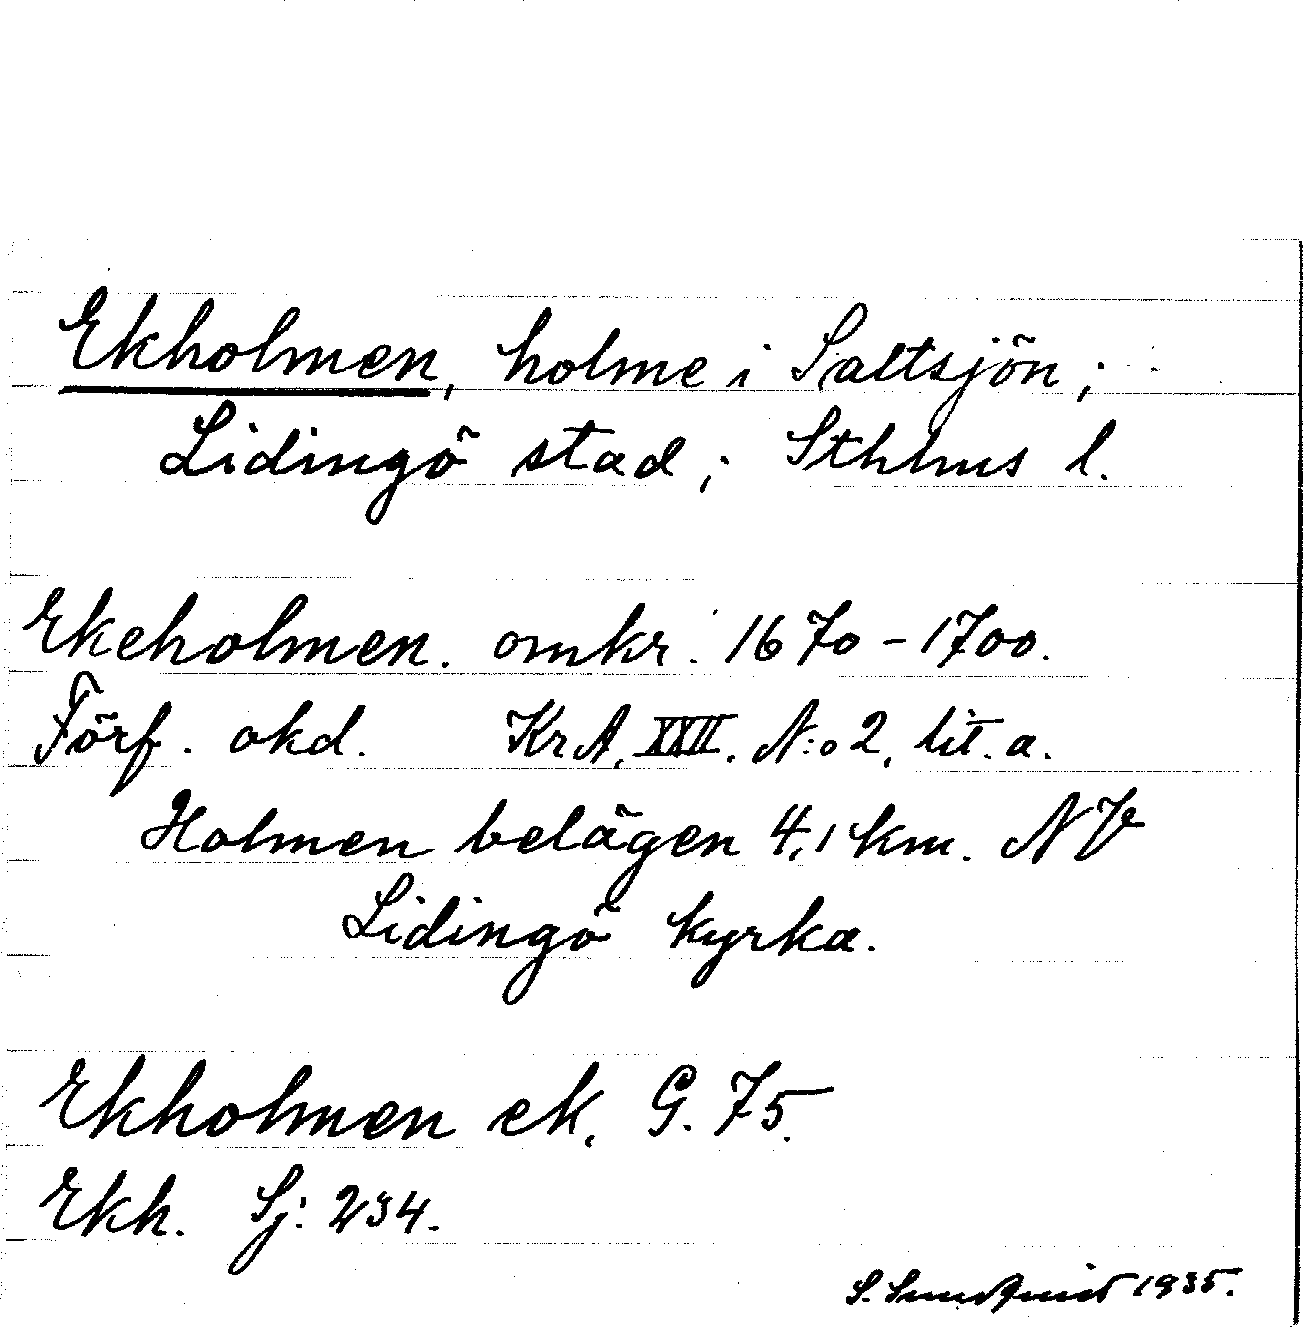 Ekholmen, holme i Saltsjön;
Lidingö stad; Sthlms l.
Ekeholmen. omkr. 1670-1700.
Förf. okd. KrA, XXII. N:o 2, lit. a.
Holmen belägen 4,1 km. NV
Lidingö kyrka.
Ekholmen ek. G. 75.
Ekh. Sj: 234.
S. Sundquist 1935.